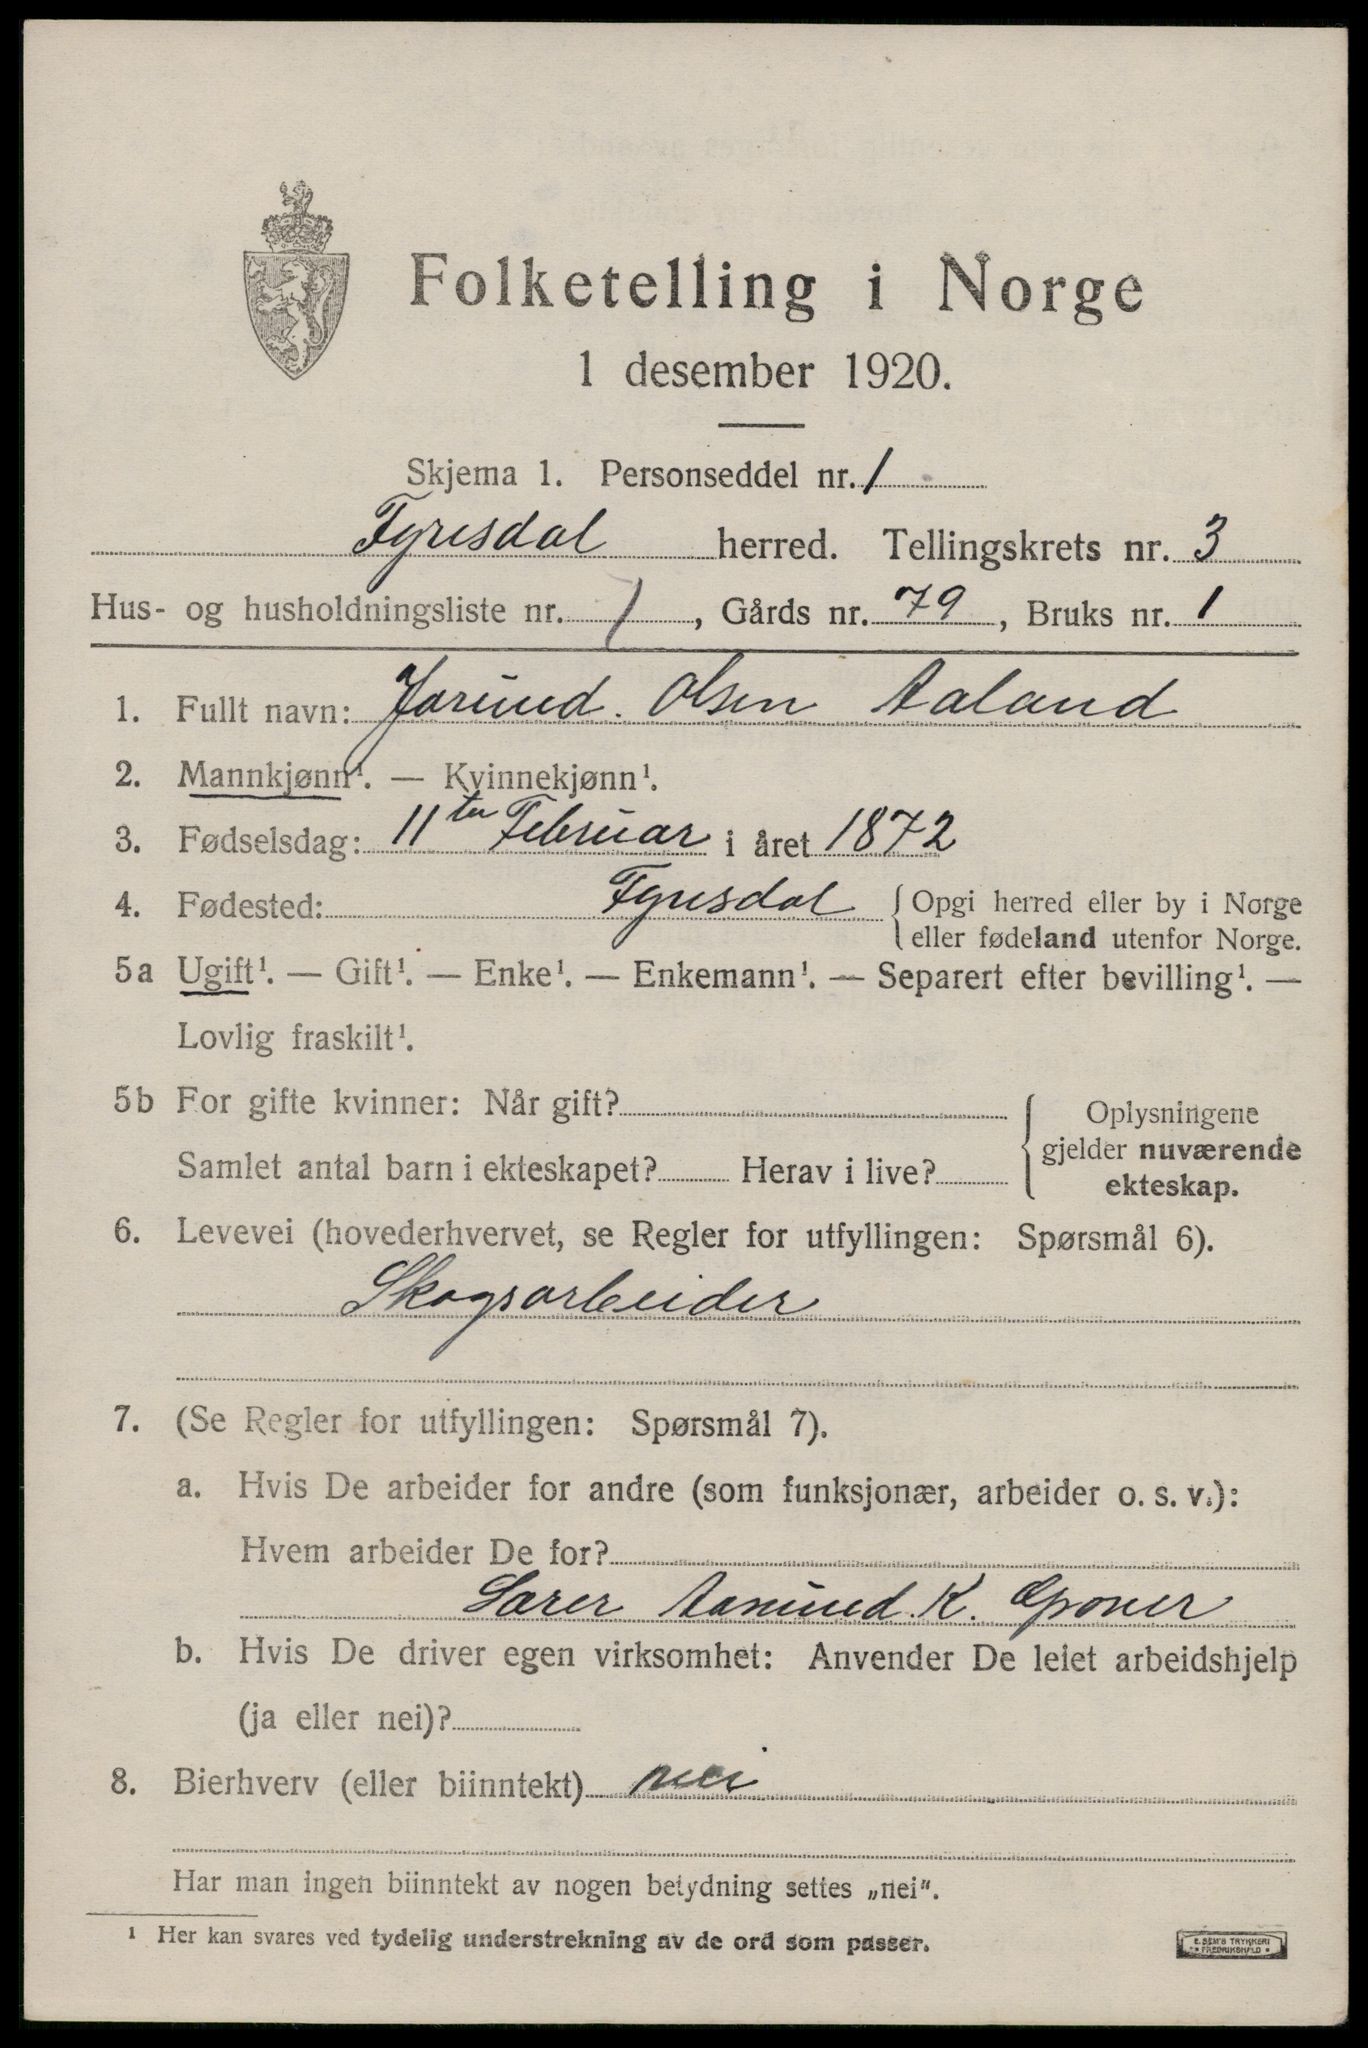 Folketelling i Norge
1 desember 1920.
Skjema 1. Personseddel nr. 1
Fyresdal herred. Tellingskrets nr. 3
Hus- og husholdningsliste nr. 1, Gårds nr. 79, Bruks nr. 1
1. Fullt navn: Jorund. Olsen Aaland
2. Mannkjønn¹. — Kvinnekjønn¹.
3. Fødselsdag: 11te Februar i året 1872
4. Fødested: Fyresdal { Opgi herred eller by i Norge
eller fødeland utenfor Norge.
5a Ugift¹. — Gift¹. — Enke¹. — Enkemann¹. — Separert efter bevilling¹. —
Lovlig fraskilt¹.
5b For gifte kvinner: Når gift?
Samlet antal barn i ekteskapet? Herav i live?
{ Oplysningene
gjelder nuværende
ekteskap.
6. Levevei (hovederhvervet, se Regler for utfyllingen: Spørsmål 6).
Skogsarbeider
7. (Se Regler for utfyllingen: Spørsmål 7).
a. Hvis De arbeider for andre (som funksjonær, arbeider o. s. v.):
Hvem arbeider De for?
Aamund. K.
b. Hvis De driver egen virksomhet: Anvender De leiet arbeidshjelp
(ja eller nei)?
8. Bierhverv (eller biinntekt) nei
Har man ingen biinntekt av nogen betydning settes „nei".
¹ Her kan svares ved tydelig understrekning av de ord som passer.
E. SEM'S TRYKKERI
FREDRIKSHALD